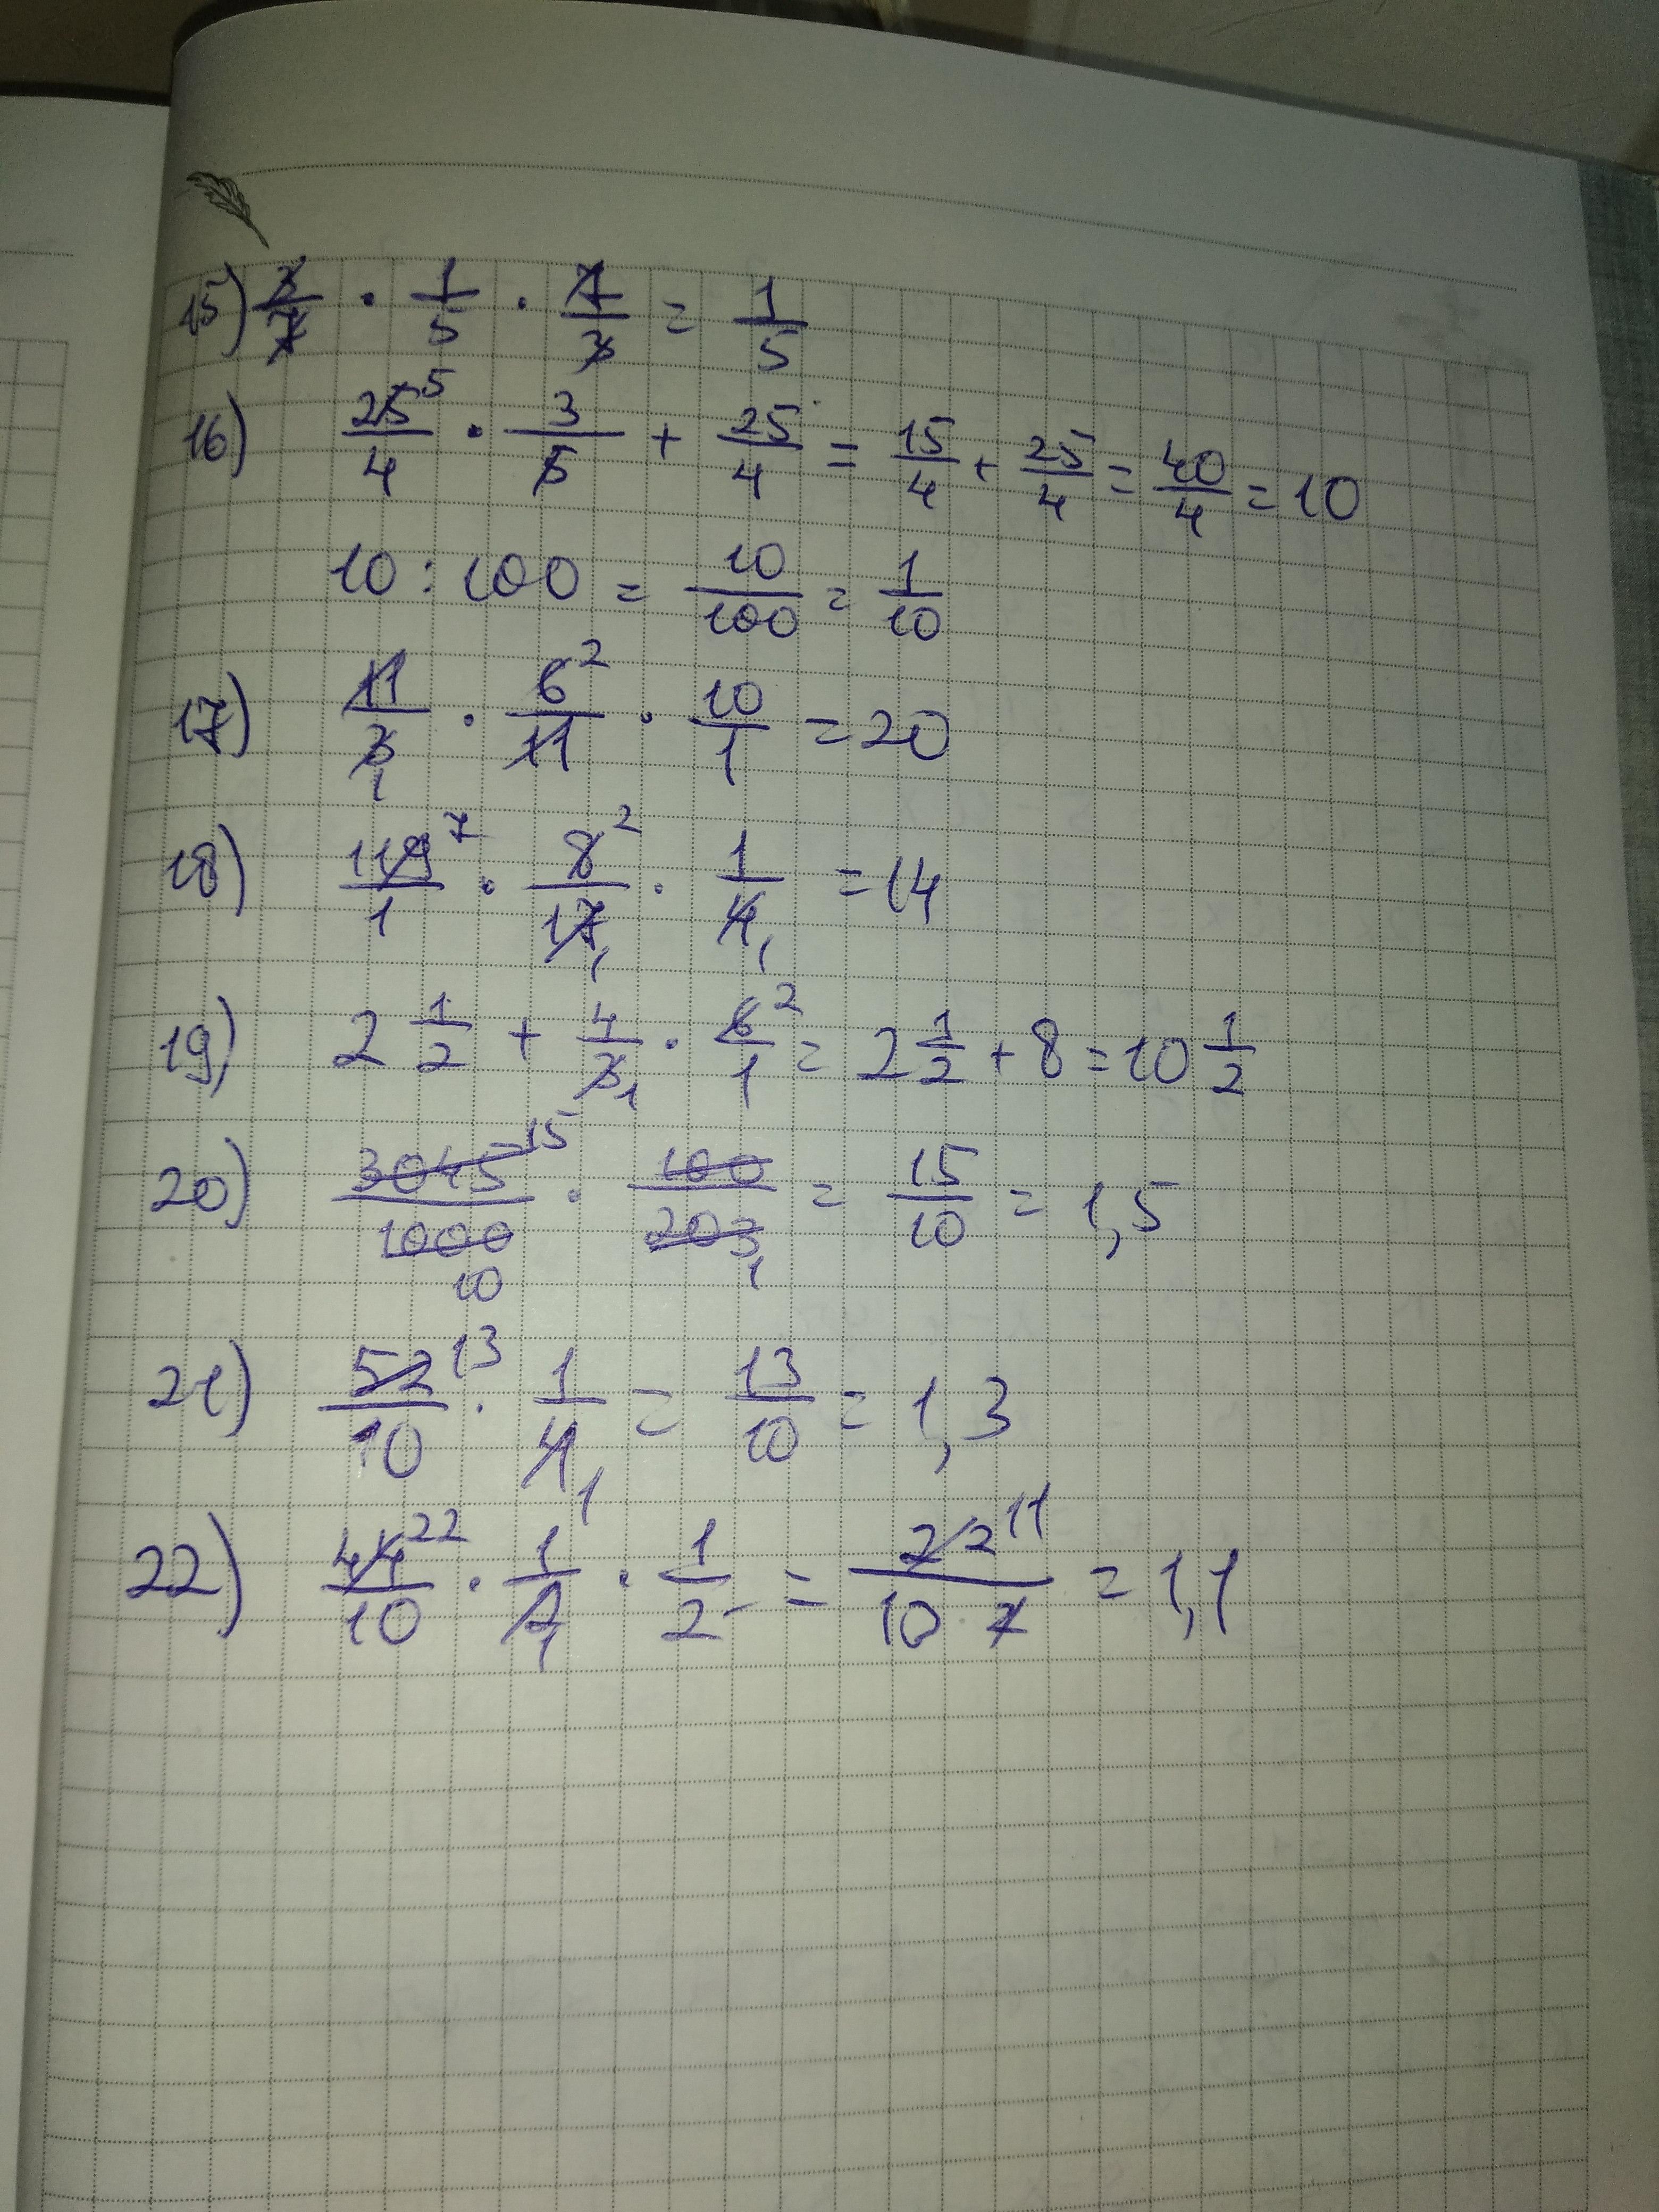 15) 3/7 · 1/5 · 7/3 = 1/5
16) 25⁵/4 · 3/5 + 25/4 = 15/4 + 25/4 = 40/4 = 10
10 : 100 = 10/100 = 1/10
17) 11/3₁ · 6²/11 · 10/1 = 20
18) 119⁷/1 · 8²/17₁ · 1/4₁ = 14
19) 2 1/2 + 4/3₁ · 6²/1 = 2 1/2 + 8 = 10 1/2
20) 3045¹⁵/1000₁₀ · 100/203₁ = 15/10 = 1,5
21) 52¹³/10 · 1/4₁ = 13/10 = 1,3
22) 44²²/10 · 1/2₁ · 1/2 = 22¹¹/10 · 2 = 1,1